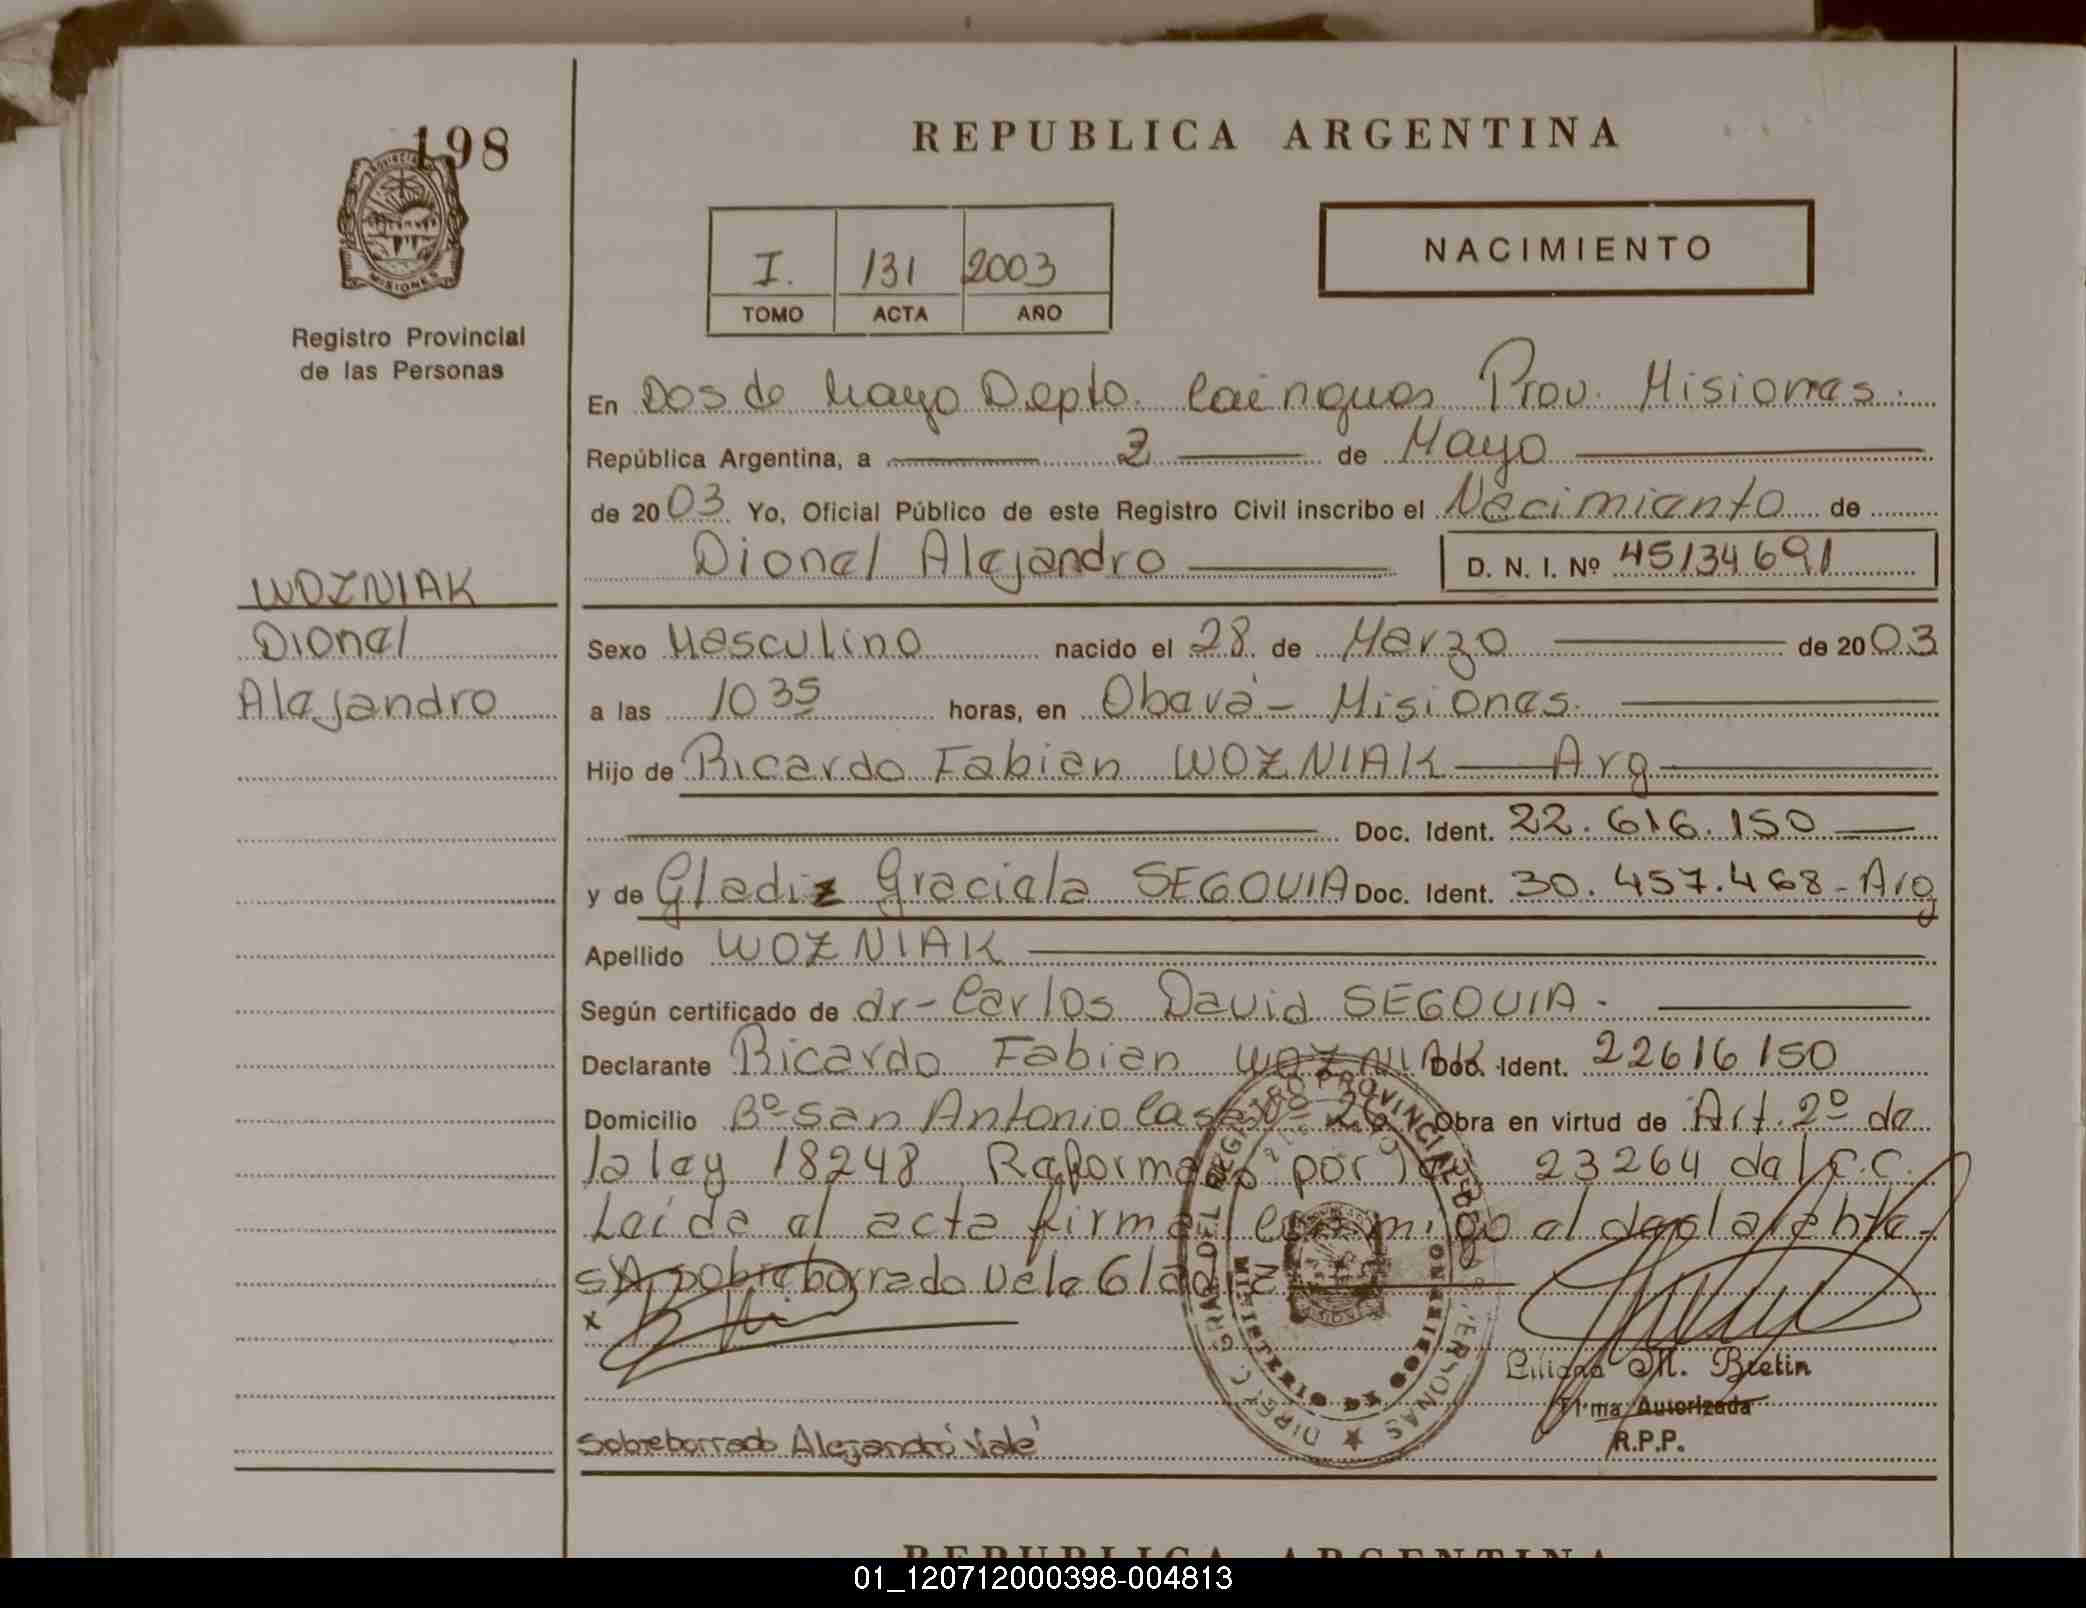 198
REPUBLICA ARGENTINA
I. 131 2003
TOMO ACTA AÑO
NACIMIENTO
MISIONES
Registro Provincial
de las Personas
En Dos de Mayo Depto. Cainguas Prov. Misiones.
República Argentina, a 2 de Mayo
de 2003 Yo, Oficial Público de este Registro Civil inscribo el Nacimiento de
Dionel Alejandro D. N. I. Nº 45134691
WOZNIAK
Dionel
Alejandro
Sexo Masculino nacido el 28 de Marzo de 2003
a las 10 35 horas, en Oberá - Misiones.
Hijo de Ricardo Fabian WOZNIAK Arg
Doc. Ident. 22.616.150
y de Gladiz Graciela SEGOVIA Doc. Ident. 30.457.468 - Arg
Apellido WOZNIAK
Según certificado de dr - Carlos David SEGOVIA.
Declarante Ricardo Fabian WOZNIAK Doc. Ident. 22616150
Domicilio Bº San Antonio Casa Nº 26 Obra en virtud de Art. 2º de
la ley 18248 Reformado por 23264 del C.C.
Leída el acta firma conmigo el declarante -
sobreborrado vele Gladiz
x
Liliana M. Bretin
Firma Autorizada
R.P.P.
Sobreborrado Alejandro Vale
DIREC. GRAL. DEL REGISTRO PROVINCIAL DE LAS PERSONAS
MINISTERIO DE GOBIERNO
REPUBLICA ARGENTINA
01_120712000398-004813